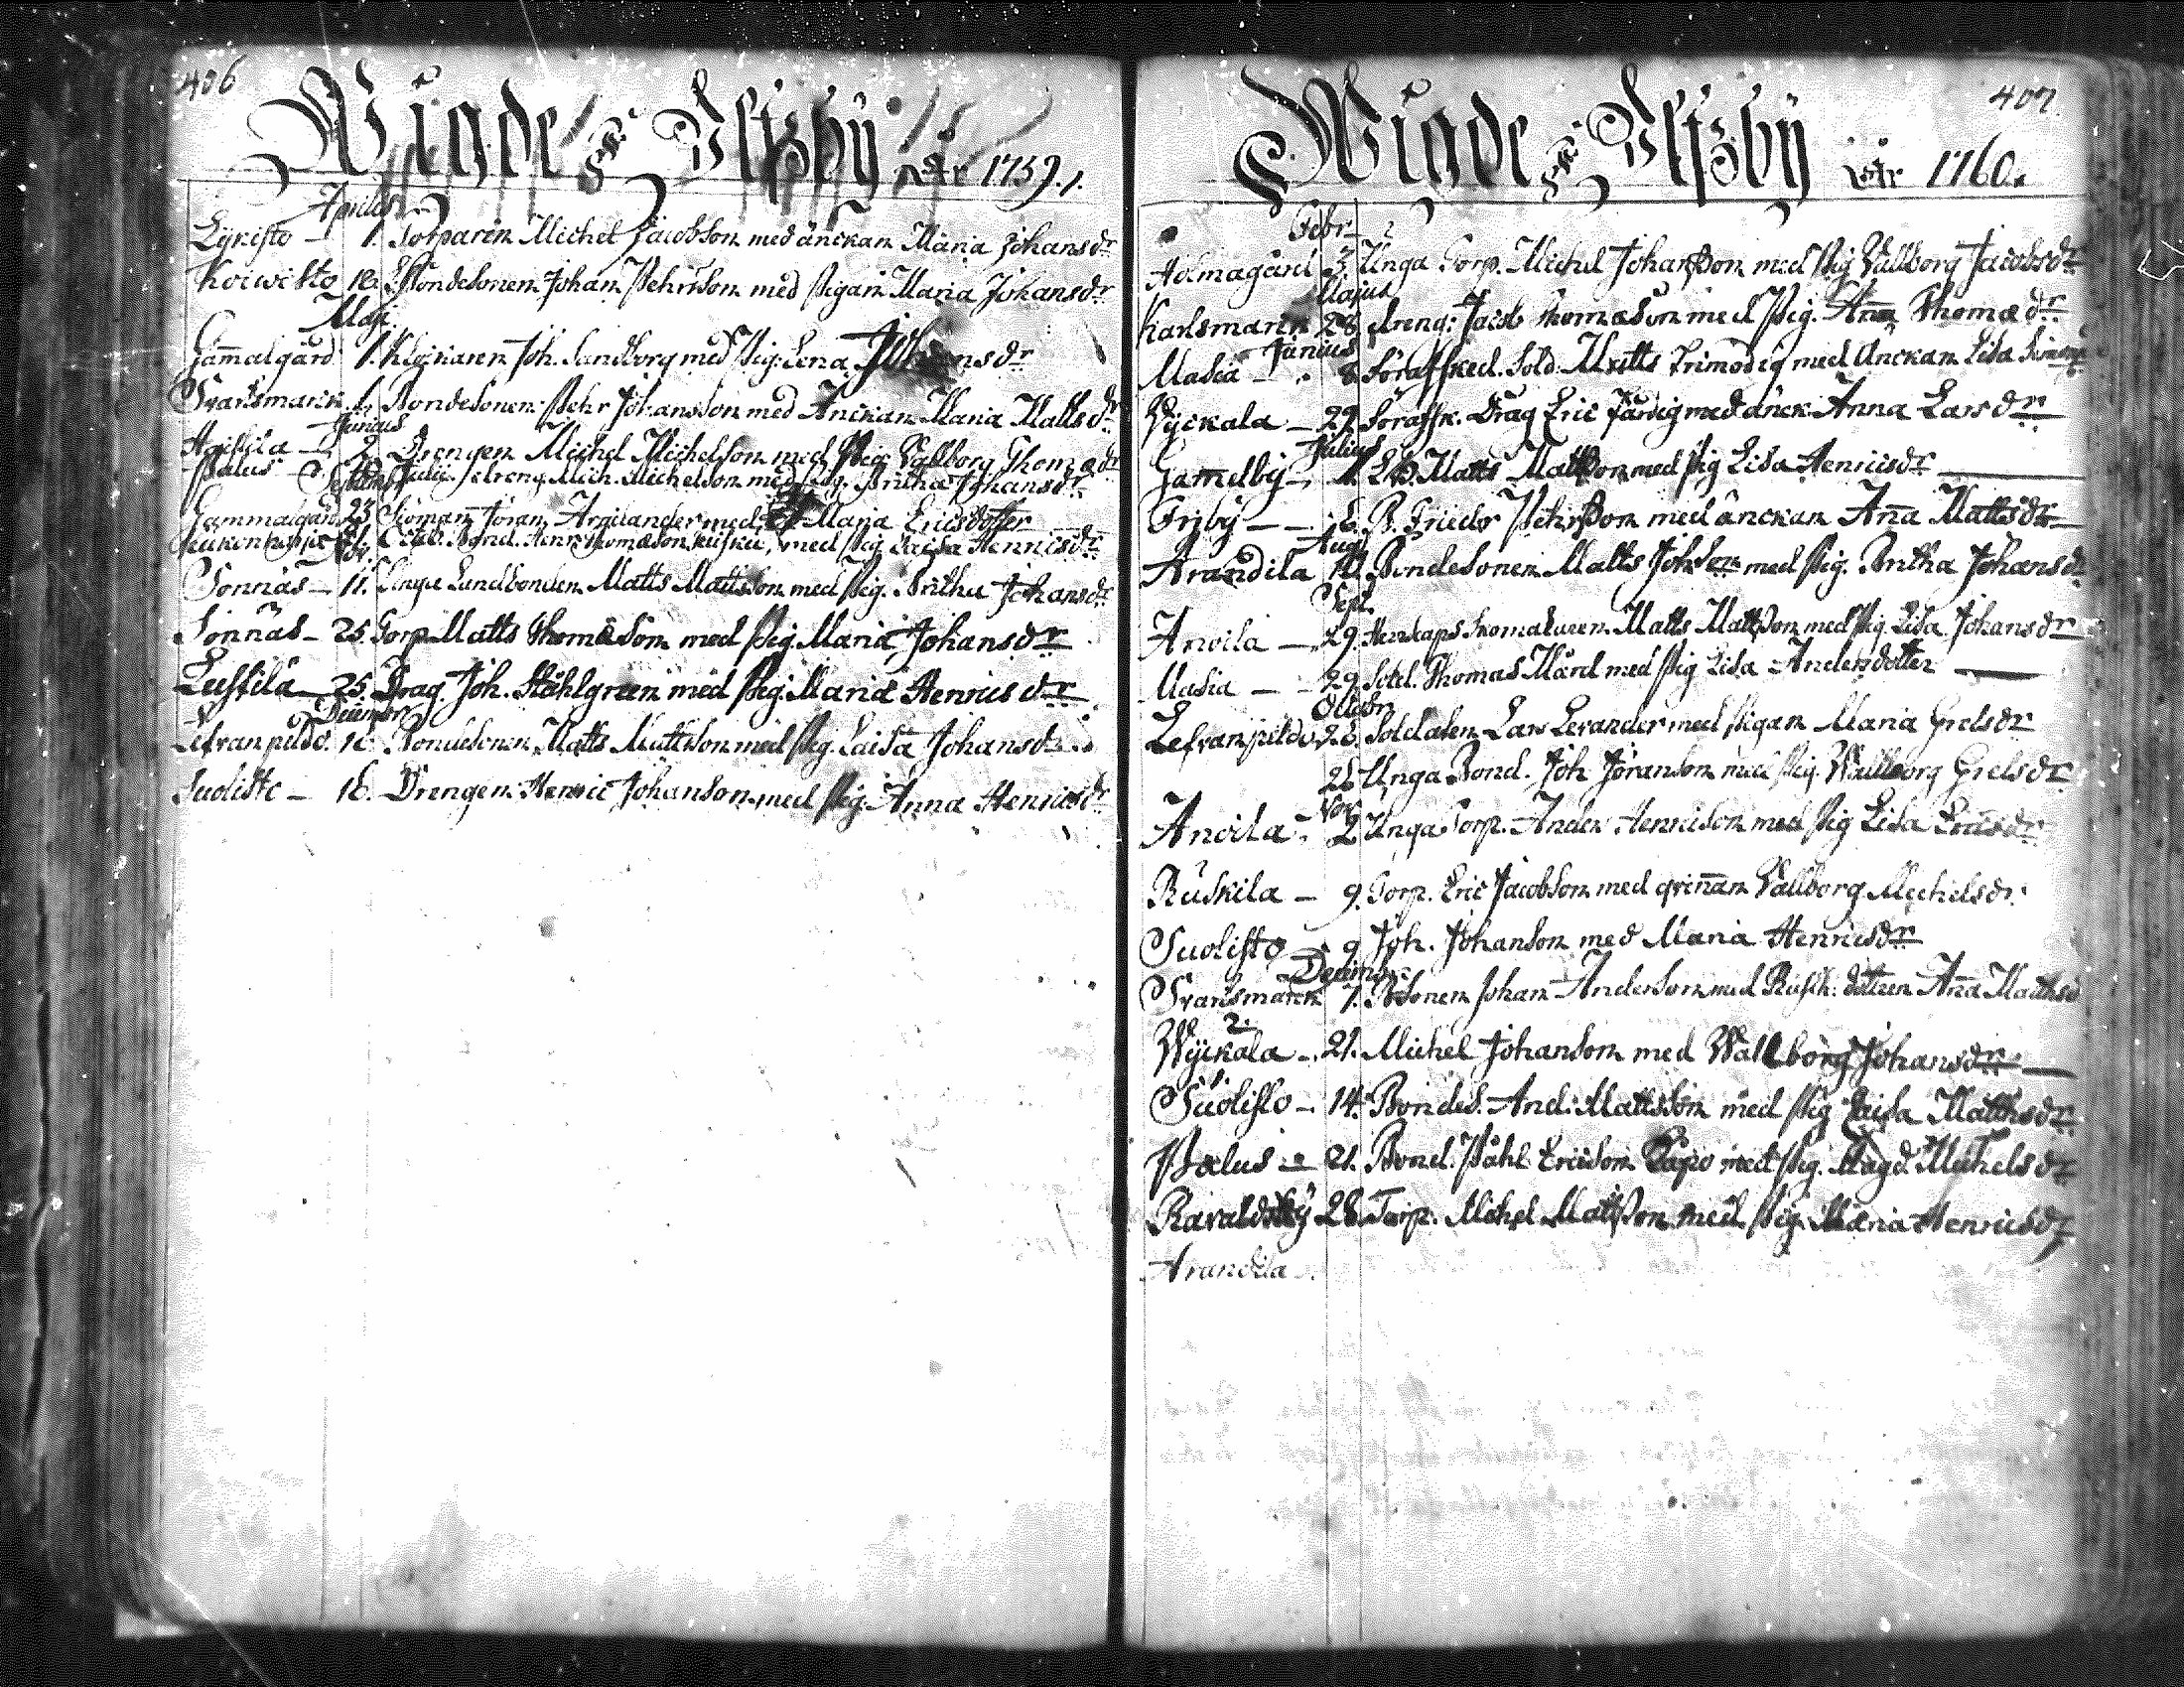 406
Wigde i Iltzby åhr 1759.
Aprilis
Lÿkisto - 1. Torparen Michel Jacobson med änckan Maria Johansdr
Koiwisto 18. Bondesonen Johan Pehrson med Pigan Maria Johansdr
Maji
Gam̄algård 1. Klockaren Joh. Sandborg med Pig. Lena
Svartsmark 1. Bondesonen Pehr Johansson med Änckan Maria Mattsdr
Junius
2. Drengen Michel Michelson med Pig. Vallborg Thomædr
Palus - Julij. dreng Mich. Michelson med Pig. Britha Johansdr
Septemb
Gammalgård 23. Jöran Argilander med Maria Ericsdotter
Bond. Henr. Thomæson med Pig. Caisa Henricsdr
Sonnäs - 11. Unga Landbonden Matts Mattsson med Pig. Britha Johansdr
Sonnäs - 25. Torp. Matts Thomæson med Pig. Maria Johansdr
25. Drag. Joh. Ståhlgreen med Pig. Maria Henricsdr
Decembr
16. Bondesonen Matts Mattsson med Pig. Caisa Johansdr
Suolisto - 16. Drengen Henric Johanson med Pig. Anna Henricsdr
407
Wigde i Iltzby åhr 1760.
Febr.
Holmagård 3. Unga Torp. Michel Johanßon med Pig Vallborg Jacobsdr
Majus
Karlsmarck 28. dreng: Jacob Thomæson med Pig. Ana Thomædr
Junius
Masia - 8. Förafsked. Sold. Matts Frimodig med Änckan Lisa
Wyckala - 29. Förafsk. Drag Eric Färdig med änck. Anna Larsdr
Julius
Gamelby - Matts Mattßon med Pig Lisa Henricsdr
Friby - - 6. B. Frieder Pehrßon med änckan Ana Mattsdr
Aug
Arandila 10. Bondesonen Matts Johson med Pig. Britha Johansdr
Sept.
Anoila - 29. Herrskaps Skomakaren Matts Mattßon med Pig. Lisa Johansdr
Masia - - 29. Sold. Thomas Mård med Pig Lisa Andersdotter
Octobr
Lefvanpeldo 26. Soldaten Lars Levander med Pigan Maria Grelsdr
26. Unga Bond. Joh Jöranson med Pig. Wallborg Grelsdr
Nov
Anoila - 2. Unga Torp. Anders Henricson med Pig Lisa Ericsdr
Ruskila - 9. Torp. Eric Jacobson med qvinnan Vallborg Michelsdr
Suolisto - 9. Joh. Johanson med Maria Henricsdr
Decembr
Svartsmarck 7. B.sonen Johan Anderson med Rusth. dottren Ana Matthsd
2.
Wÿckala - 21. Michel Johanson med Wallborg Johansdr
Suolisto - 14. Bondes. And. Mattsson med Pig Caisa Matthsdr
Palus - 21. Bond. Påhl Ericson Papo med Pig. Magd. Michelsdr
Ravaldsby 28. Torp. Michel Mattßon med Pig. Maria Henricsdr
Arandila